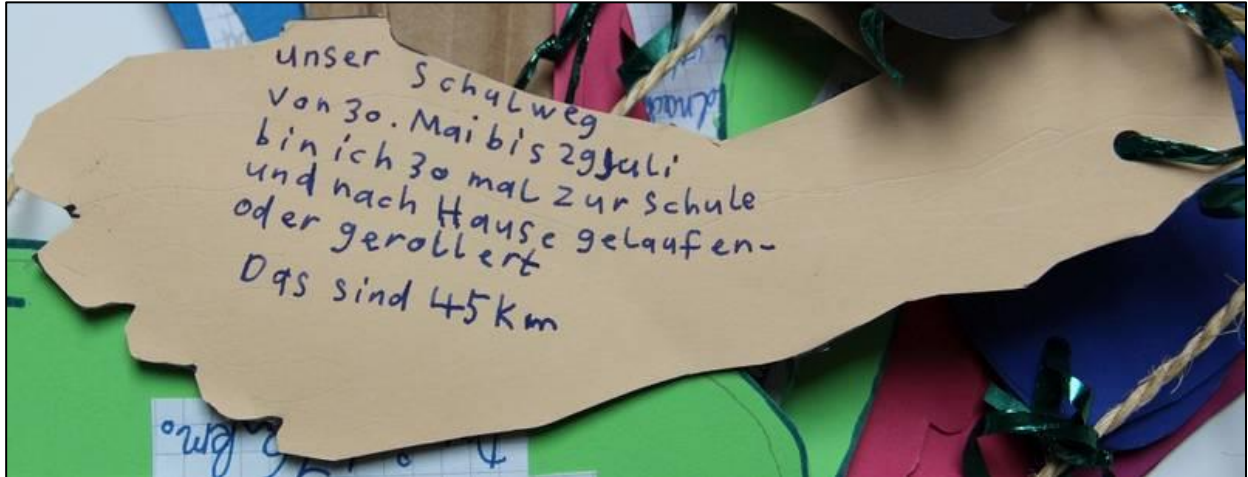 unser Schulweg
Von 30. Mai bis 29 Juli
bin ich 30 mal zur Schule
und nach Hause gelaufen-
oder gerollert
Das sind 45 Km
km.